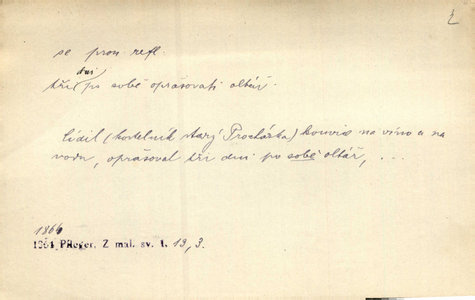 ž
se pron refl.
dni
tři po sobě oprašovati oltář.
Cídil (kostelník starý Procházka) konvic na víno a na
vodu, oprašoval tři dni po sobě oltář, ...
1866
1864 Pfleger, Z mal. sv. I. 19, 3.